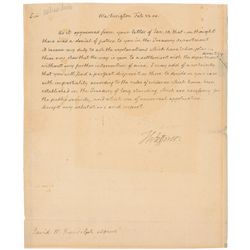 Sir
Washington Feb. 22. 08.
As it appeared from your letter of Jan. 18. that you thought
there was a denial of justice to you in the Treasury department
it became my duty to ask the explanations which have taken place.
these say that the way is open to a settlement with the
without any further intervention of mine. I may add of a certainty
that you will find a perfect disposition there to decide on your case
with impartiality according to the rules of evidence which have been
established in the Treasury of long standing which are necessary for
the public safety, and which are of universal application.
accept my salutations and respect.
Th: Jefferson
David M. Randolph esquire